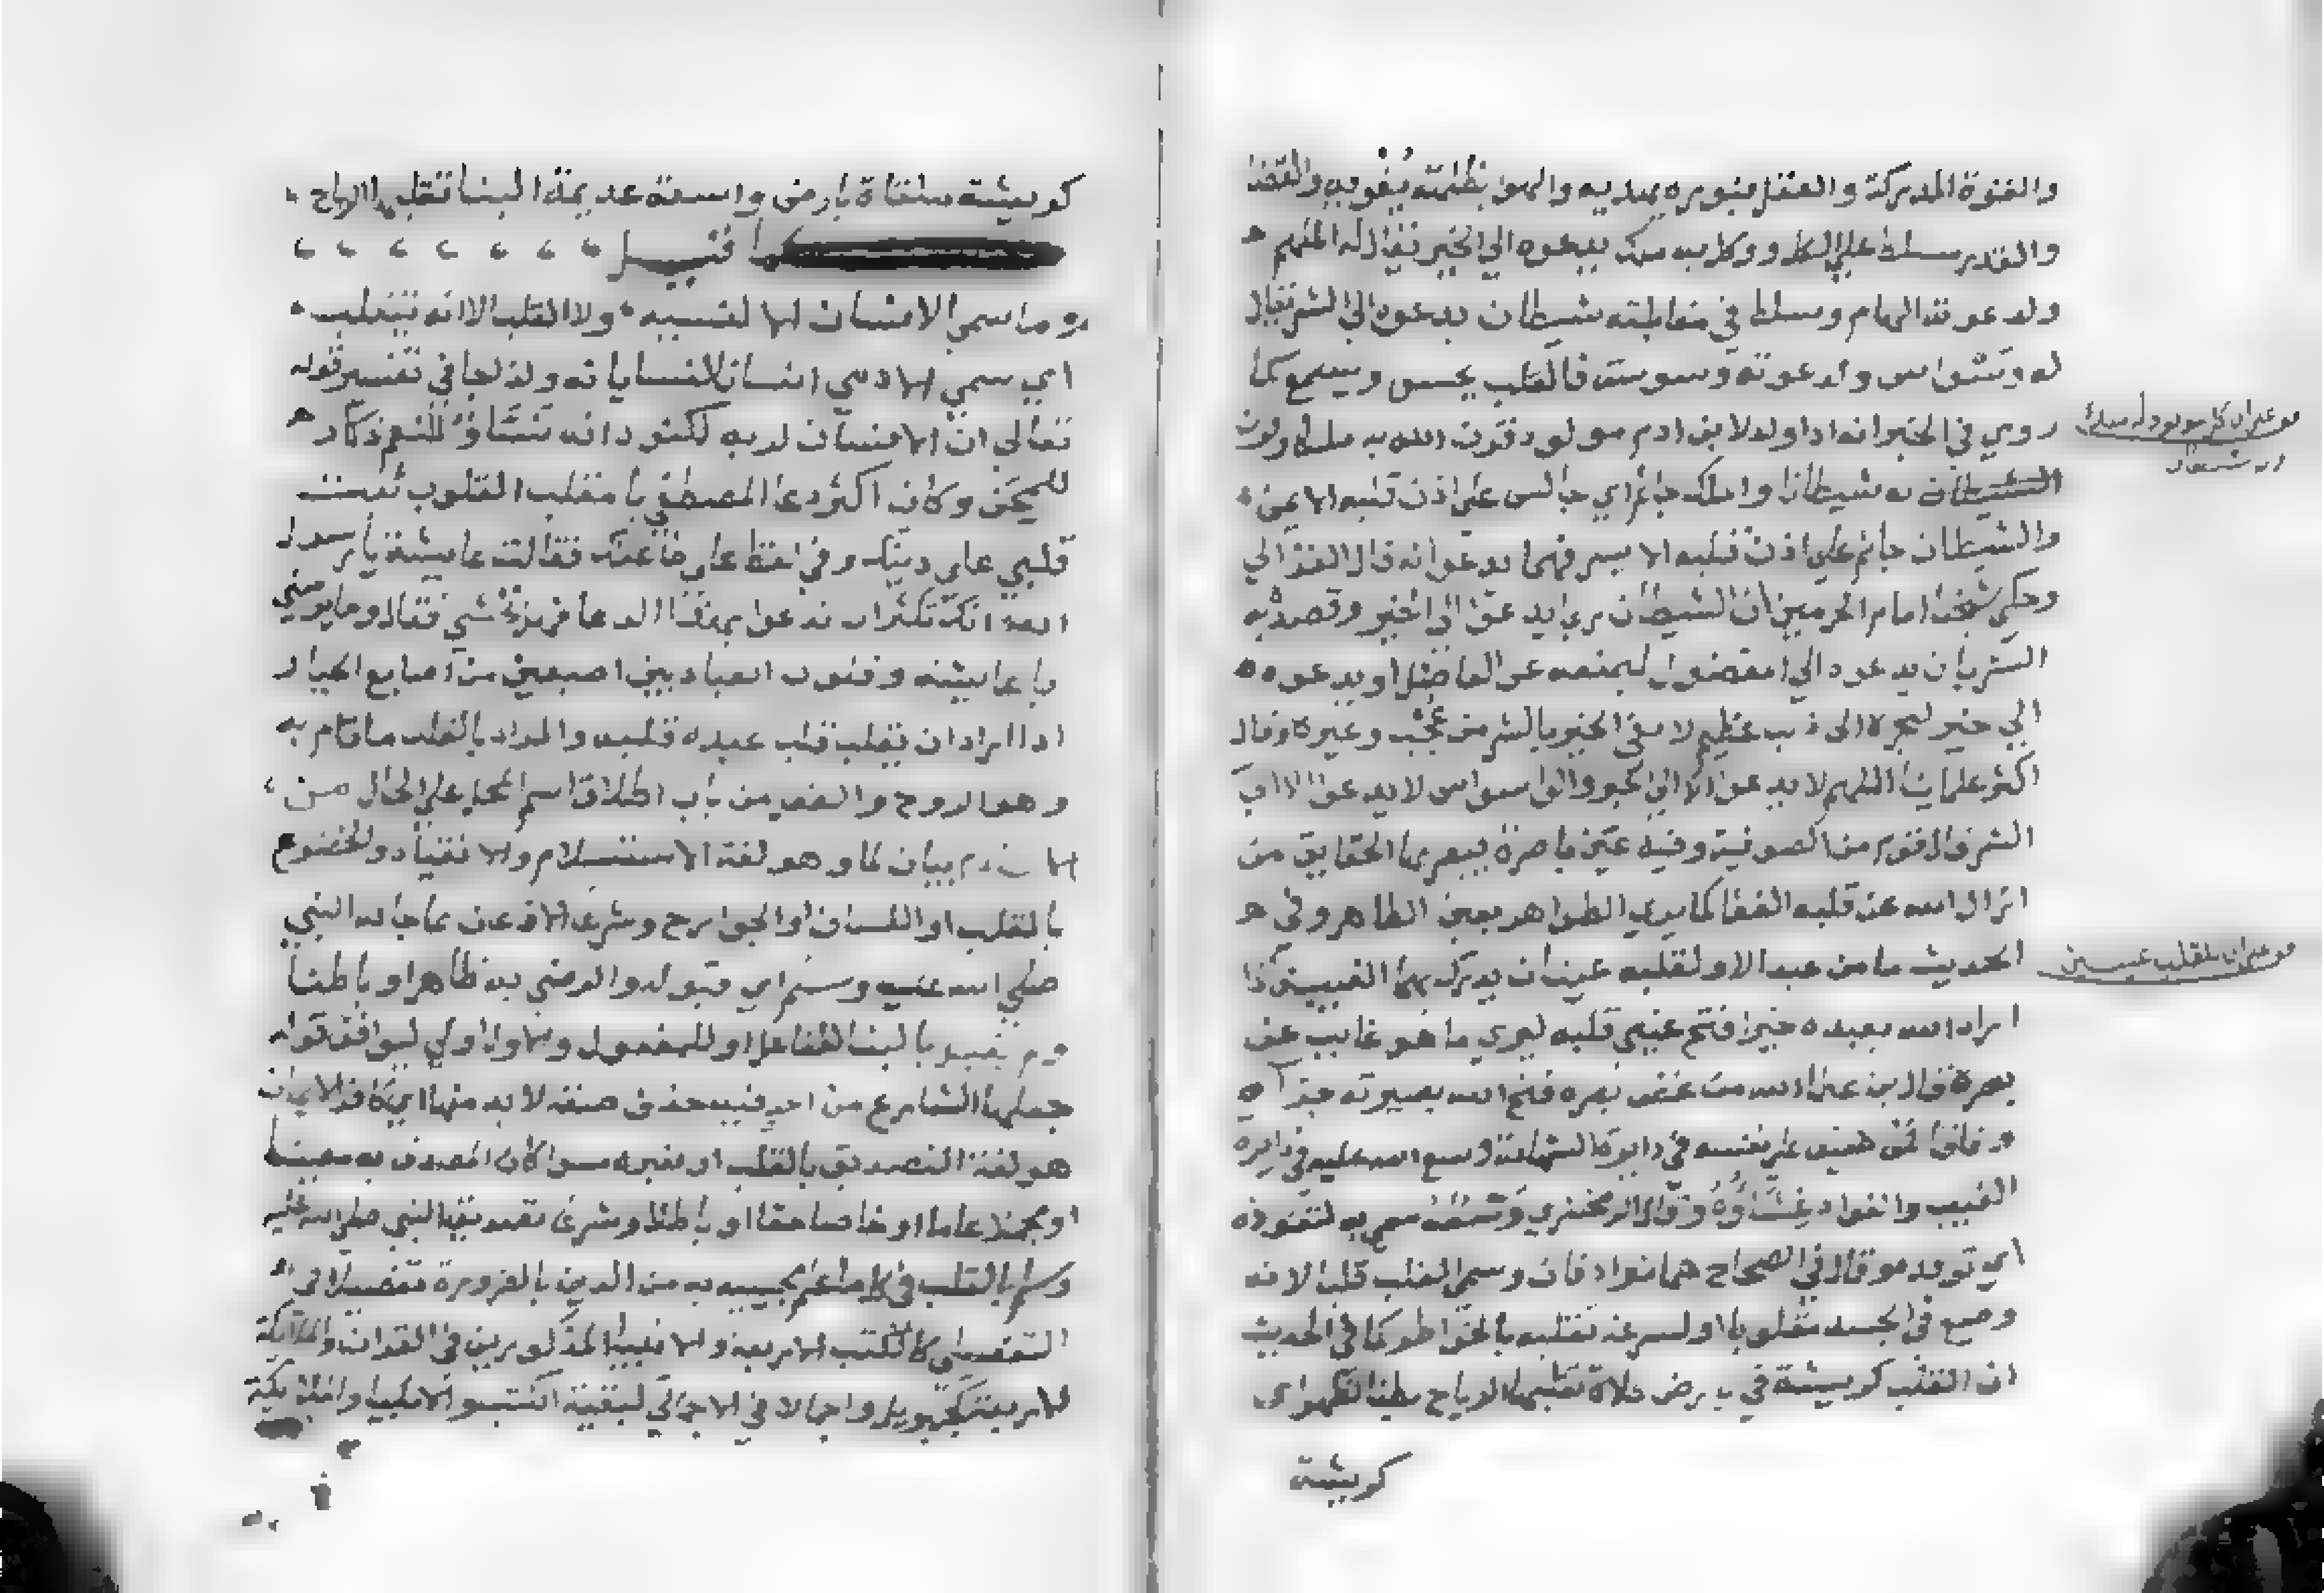 والقوة المدركة والعقل بنوره يهديه والهوا بظلمته يغويه والقضا
والقدر مسلط على الكل ووكل به ملك يدعوه الي الخير يقال له الملهم
ولدعوته الهام وسلط في مقابلته شيطان يدعوه الي الشر يقال
له وسواس ولدعوته وسوسة فالقلب يحس ويسمع كما
روي في الخبر انه اذا ولد لابن ادم مولود قرن الله به ملكا وقرن
الشيطان به شيطانا والملك جاثم اي جالس على اذن قلبه الايمن
والشيطان جاثم علي اذن قلبه الايسر فهما يدعوانه قال الغزالي
وحكي شيخنا امام الحرمين ان الشيطان ربما يدعوا الي الخير وقصده به
الشر بان يدعوه الي المفضول ليمنعه عن الفاضل او يدعوه
الي خير ليجره الى ذنب عظيم لا يفي الخير بالشر من عجب وغيره وقال
اكثر علمائنا الملهم لا يدعوا الا الي الخير والوسواس لا يدعوا الا الي
الشر قال قوم من الصوفية وفيه عين باصرة يبصر بها الحقايق من
ازال الله عن قلبه الغطا كما يري الظواهر بعين الظاهر وفي
الحديث ما من عبد الا ولقلبه عينان يدرك بهما الغيب فاذا
اراد الله بعبده خيرا فتح عيني قلبه ليري ما هو غايب عن
بصره قال بن عطا الله من غض بصره فتح الله بصيرته جزا
وفاقا فمن ضيق على نفسه في دايرة الشهادة وسع الله عليه في دايرة
الغيب والفواد غشاوه وقال الزمخشري وسمي به لتفؤده
اي توقده وقال في الصحاح هما مترادفان وسمي القلب قلبا لانه
وضع في الجسد مقلوبا او لسرعة تقلبه بالخواطر كما في الحديث
ان القلب كريشة في بارض فلاة تقلبها الرياح بطنا لظهر اي
كريشة
كريشة ملقاة بارض واسعة عديمة البنا تقلبها الرياح
كما قيل
وما سمي الانسان الا لنسيه ولا القلب الا انه يتقلب
اي سمي الادمي انسانا لانسايانه ولذا جا في تفسير قوله
تعالي ان الانسان لربه لكنود انه نساء للنعم ذكار
للمحن وكان اكثر دعا المصطفي يا مقلب القلوب ثبت
قلبي على دينك وفي لفظ على طاعتك فقالت عايشة يا رسول
الله انك تكثر ان تدعوا بهذا الدعا فهل تخشي فقال وما يومنني
يا عايشة وقلوب العباد بين اصبعين من اصابع الجبار
اذا اراد ان يقلب قلب عبده قلبه والمراد بالقلب ما قام به
وهو الروح والنفس من باب اطلاق اسم المحل على الحال من
الاسلام بيان لما وهو لغة الاستسلام والانقياد والخضوع
بالقلب او اللسان او الجوارح وشرعا الاذعان بما جا به النبي
صلي الله عليه وسلم اي قبوله والرضي به ظاهرا وباطنا
ولم يقيد بالبنا للفاعل او للمفعول والاول اولي ليوافق قوله
جعلها الشارع من اجزا فيه حذف صفة لا بد منها اي كاف الايمان
هو لغة التصديق بالقلب او بغيره سوا كان المصدق به معينا
او مجملا عاما او خاصا حقا او باطلا وشرعا تصديق النبي صلي الله عليه
وسلم بالقلب في كل ما علم مجييه به من الدين بالضرورة تفصيلا في
التفصيلي كالكتب الاربعة والانبيا المذكورين في القران والملايكة
الاربعة كجبريل واجمالا في الاجمالي لبقية الكتب والانبيا والملايكة